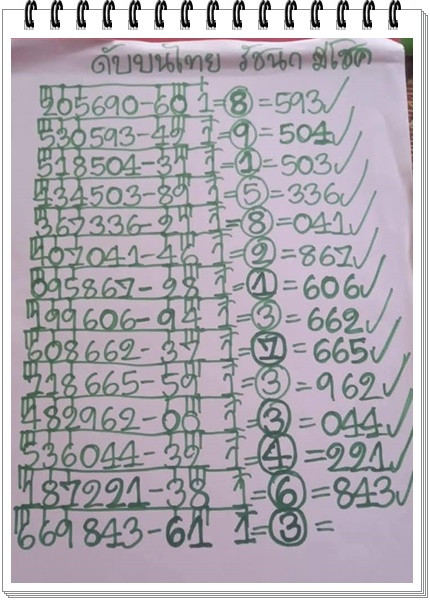 ดับบนไทย รัชนก มีโชค
205690-60 1=8=593✓
530593-49 1=9=504✓
518504-37 1=1=503✓
434503-89 1=5=336✓
367336-27 1=8=041✓
407041-46 1=2=867✓
095867-98 1=1=606✓
999606-94 1=3=662✓
608662-37 1=7=665✓
718665-59 1=3=962✓
482962-00 1=3=044✓
536044-39 1=4=221✓
187221-38 1=6=843✓
669843-61 1=3=